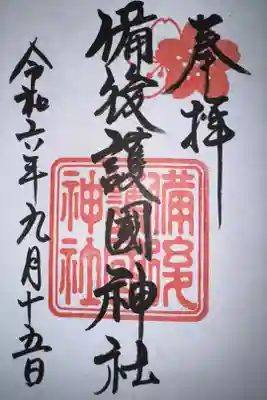 奉拝
備後護國神社
備後
護國
神社
令和六年九月十五日